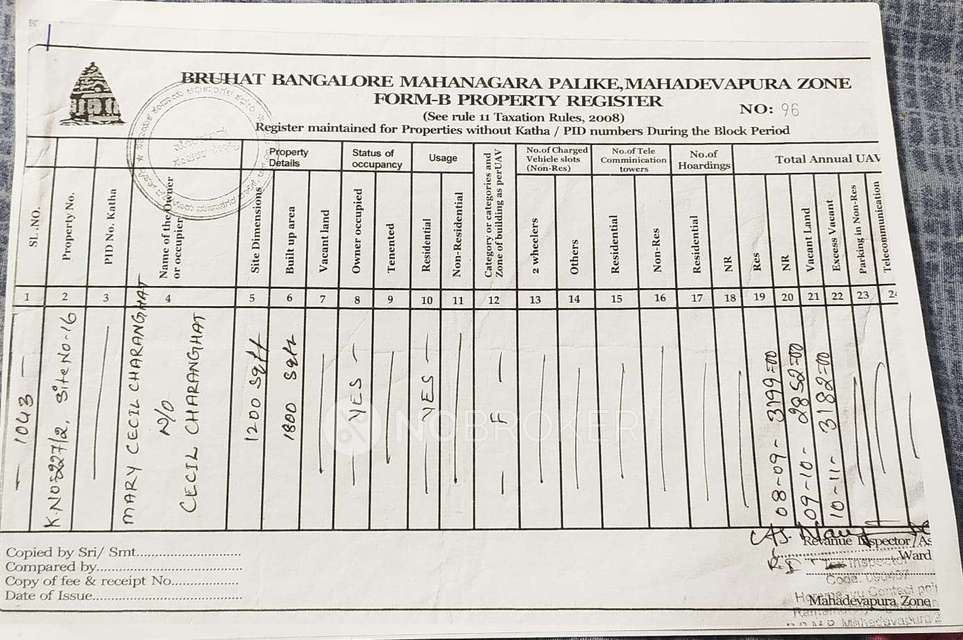 BRUHAT BANGALORE MAHANAGARA PALIKE, MAHADEVAPURA ZONE
FORM-B PROPERTY REGISTER
NO: 96
(See rule 11 Taxation Rules, 2008)
Register maintained for Properties without Katha / PID numbers During the Block Period
Property Details
Status of occupancy
Usage
No.of Charged Vehicle slots (Non-Res)
No.of Tele Comminication towers
No.of Hoardings
Total Annual UAV
SL.NO.
Property No.
PID No. Katha
Name of the Owner or occupier
Site Dimensions
Built up area
Vacant land
Owner occupied
Tenented
Residential
Non-Residential
Category or categories and Zone of building as perUAV
2 wheelers
Others
Residential
Non-Res
Residential
NR
Res
NR
Vacant Land
Excess Vacant
Parking in Non-Res
Telecommunication
1 2 3 4 5 6 7 8 9 10 11 12 13 14 15 16 17 18 19 20 21 22 23
1043
K.NO 227/2, Site No-16
MARY CECIL CHARANGHAT
W/O
CECIL CHARANGHAT
1200 Sqft
1800 Sqft
YES
YES
F
08-09- 3199=00
09-10- 2852=00
10-11- 3182=00
NOBROKER
Copied by Sri/ Smt
Compared by
Copy of fee & receipt No
Date of Issue
Revenue Inspector/As
Ward
Mahadevapura Zone